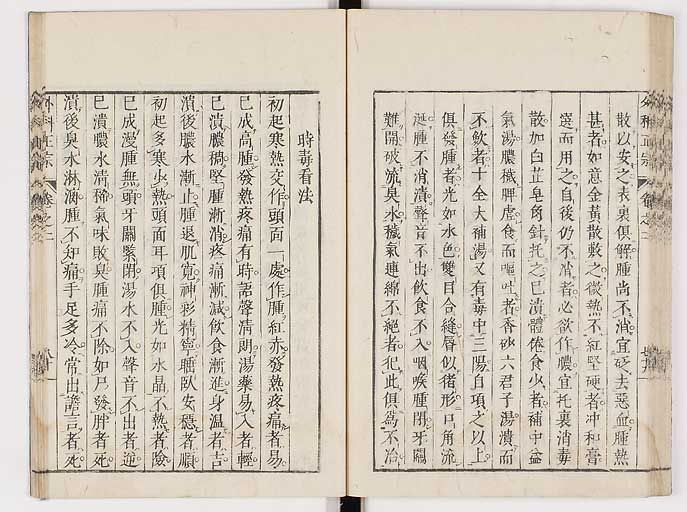 散以安之表裏俱解腫尚不消宜砭去惡血腫熱
甚者如意金黃散敷之微熱不紅堅硬者冲和膏
選而用之自後仍不消者必欲作膿宜托裏消毒
散加白芷皂角針托之已潰體倦食少者補中益
氣湯膿穢脾虛食而嘔吐者香砂六君子湯潰而
不斂者十全大補湯又有毒中三陽自項之以上
俱發腫者光如水色雙目合縫唇似猪形口角流
涎腫不消潰聲音不出飲食不入咽喉腫閉牙關
難開破流臭水穢氣連綿不絕者犯此俱為不治
外科正宗 卷之二
時毒看法
初起寒熱交作頭面一處作腫紅赤發熱疼痛者易
已成高腫發熱疼痛有時語聲清朗湯藥易入者輕
已潰膿稠堅腫漸消疼痛漸減飲食漸進身溫者吉
潰後膿水漸止腫退肌寬神彩精寧睡臥安穩者順
初起多寒少熱頭面耳項俱腫光如水晶不熱者險
已成漫腫無頭牙關緊閉湯水不入聲音不出者逆
已潰膿水清稀氣味敗臭腫痛不除如尸發胖者死
潰後臭水淋漓腫不知痛手足多冷常出譫言者死
外科正宗 卷之二